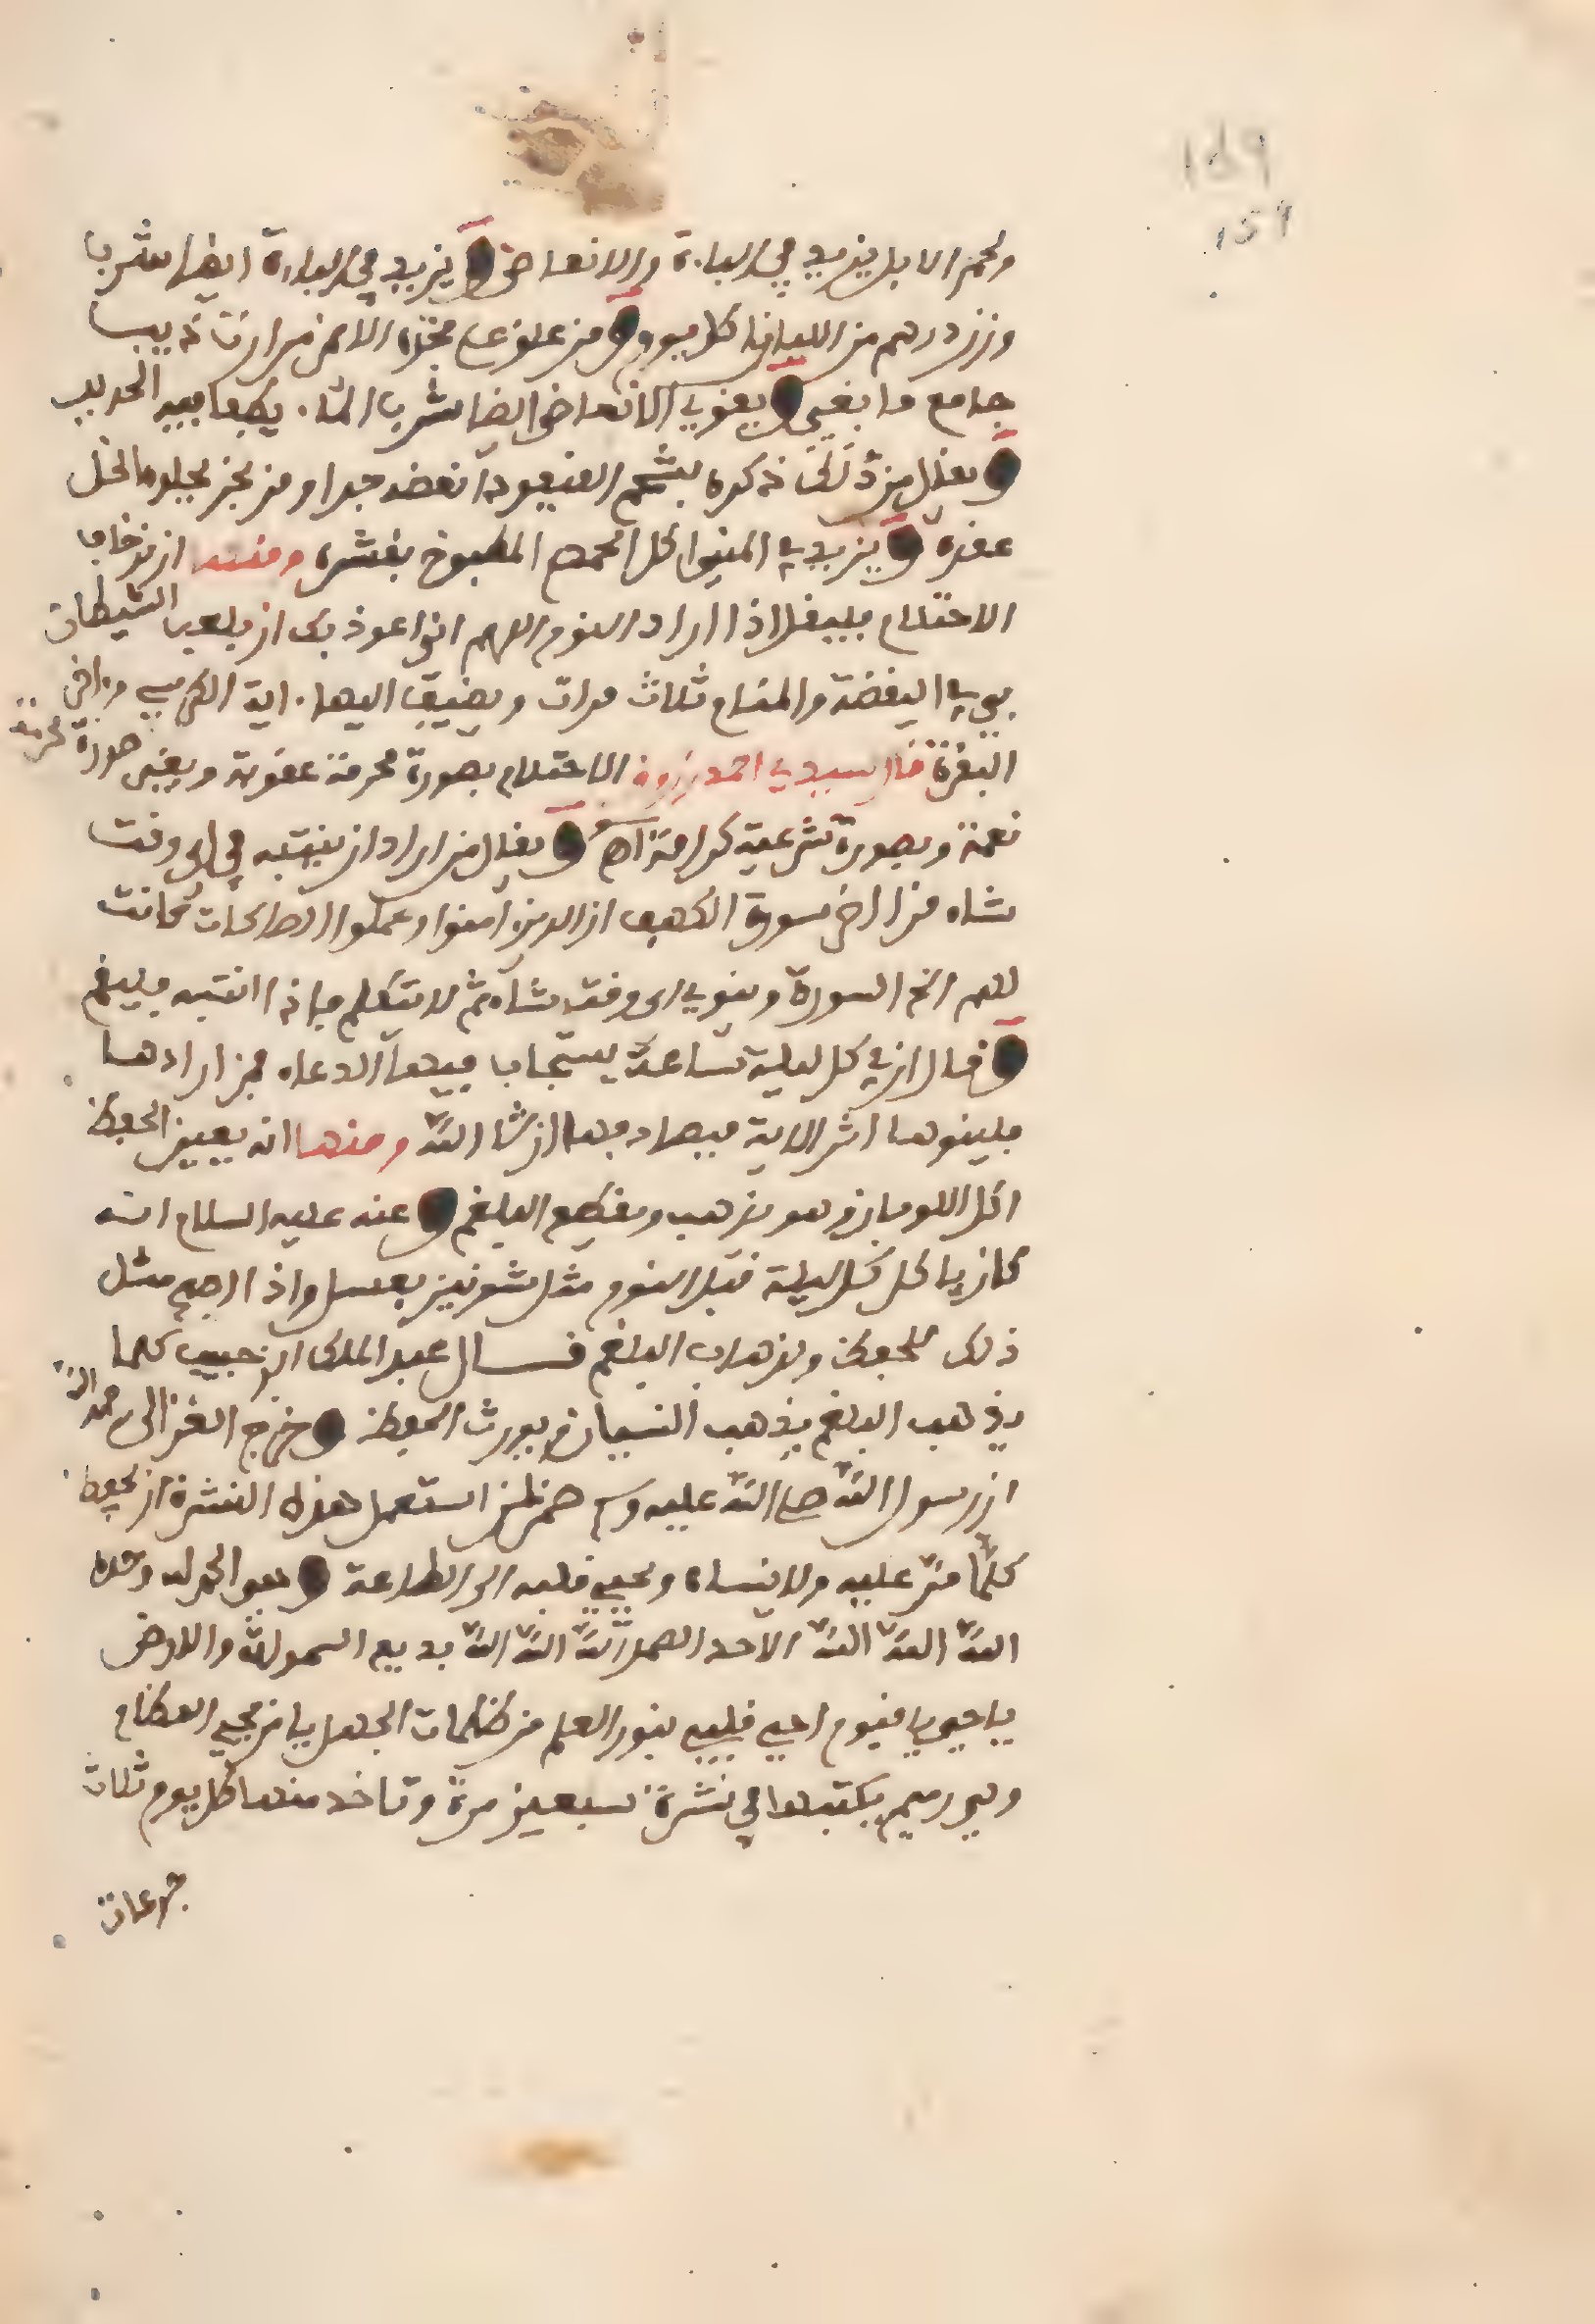 169
159
ولحم الابل يزيد في الباءة والانعاض ويزيد في الباءة ايضا شرب
وزن درهم من اللبان كل يوم ومن علق على فخذه الايمن مرارة ذيب
جامع ما بغى ويقوي الانعاض ايضا شرب الماء يطفا فيه الحديد
ويقال من ذلك ذكره بشحم انعض جدا ومن بخر بحيلوم الخل
عقده ويزيد في المني اكل الحمص المطبوخ بقشره ومنها ان من خاف
الاحتلام فليقل اذا اراد النوم اللهم اني اعوذ بك ان يلعب الشيطان
بي في اليقضة والمنام ثلاث مرات ويضيف اليها اية الكرسي واخر
البقرة قال سيدي احمد زروق الاحتلام بصورة محرمة عقوبة وبغير صورة محرمة
نعمة وبصورة شرعية كرامة اه ويقال من اراد ان ينتبه في اي وقت
شاء من اخر سورة الكهف ان الذين امنوا وعملوا الصالحات كانت
لهم الخ السورة وينوي اي وقت شاء ثم لا يتكلم فاذا انتبه فليقم
وقال ان في كل ليلة ساعة يستجاب فيها الدعاء فمن ارادها
فلينوها اثر الاية فيصادفها ان شا الله ومنها انه يعين الحفظ
اكل اللوبان وهو يذهب ويقطع البلغم وعنه عليه السلام انه
كان ياكل كل ليلة قبل النوم مثل شونيز بعسل واذا اصبح مثل
ذلك للحفظ ويذهاب البلغم قال عبد الملك ابن حبيب كلما
يذهب البلغم يذهب النسيان ويورث الحفظ وخرج الغزالي رحمه الله
ان رسول الله صلى الله عليه وسلم ضمن لمن استعمل هذه النشرة ان يحفظ
كلما مر عليه ولا ينساه ويحيي قلبه الى الطاعة وهو الحمد لله وحده
الله الله الله الاحد الصمد الله الله الله بديع السموات والارض
يا حي يا قيوم احيي قلبي بنور العلم من ظلمات الجهل يا من يحيي العظام
وهي رميم يكتبها في نشرة سبعين مرة وتاخذ منها كل يوم ثلاث
جرعات